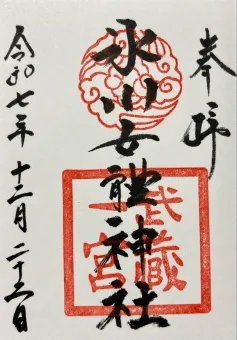 奉拝
氷川女體神社
武蔵
一宮
令和七年十二月二十六日